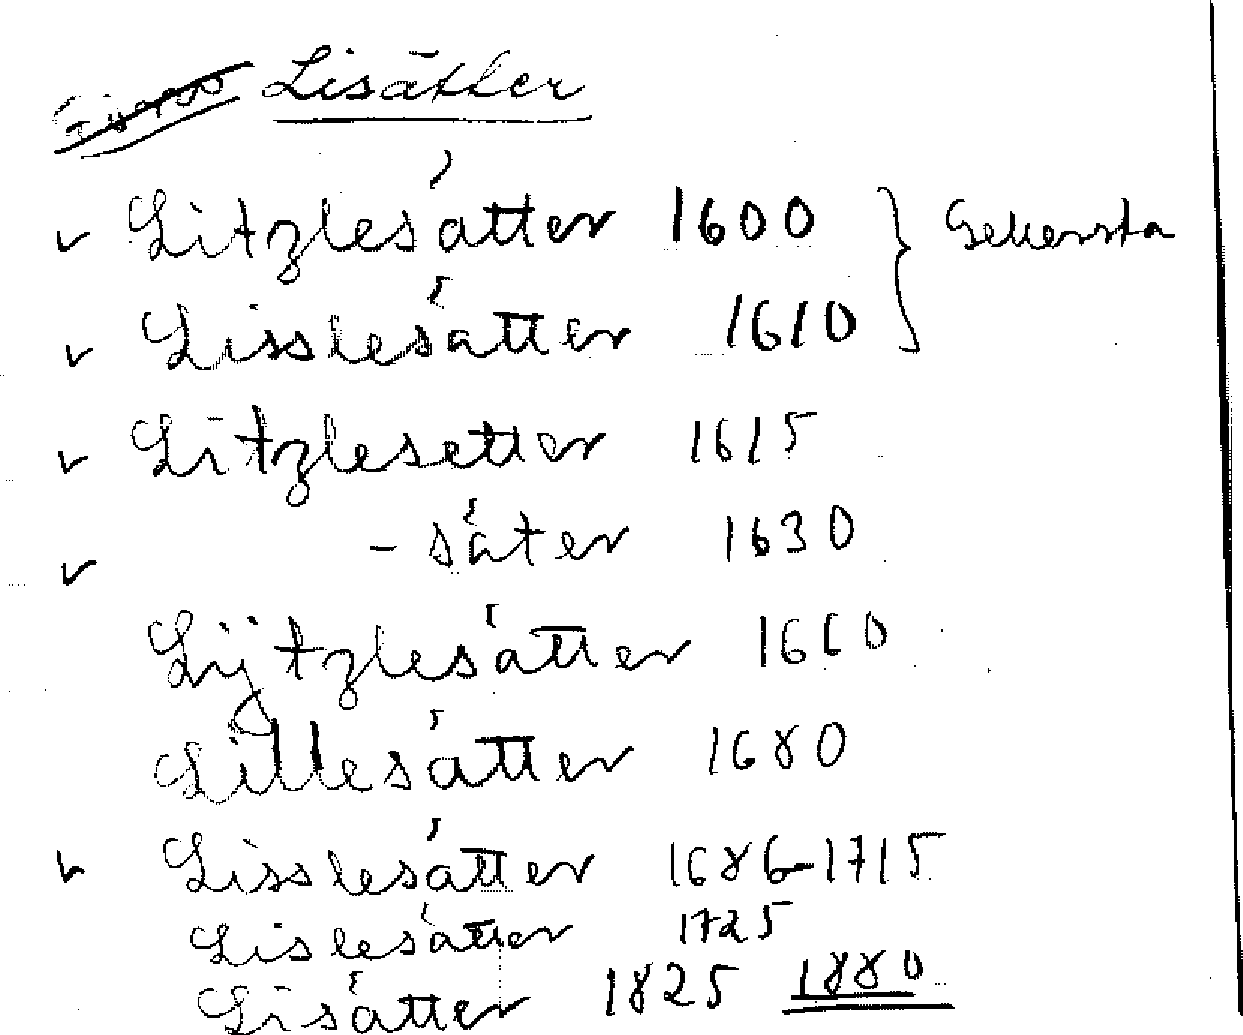 Lisätter
Litzlesätter 1600
Lisslesätter 1610
Litzlesetter 1615
- säter 1630
Lijtzlesätter 1660
Lillesätter 1680
Lisslesätter 1686-1715
Lislesätter 1725
Lisätter 1825 1880